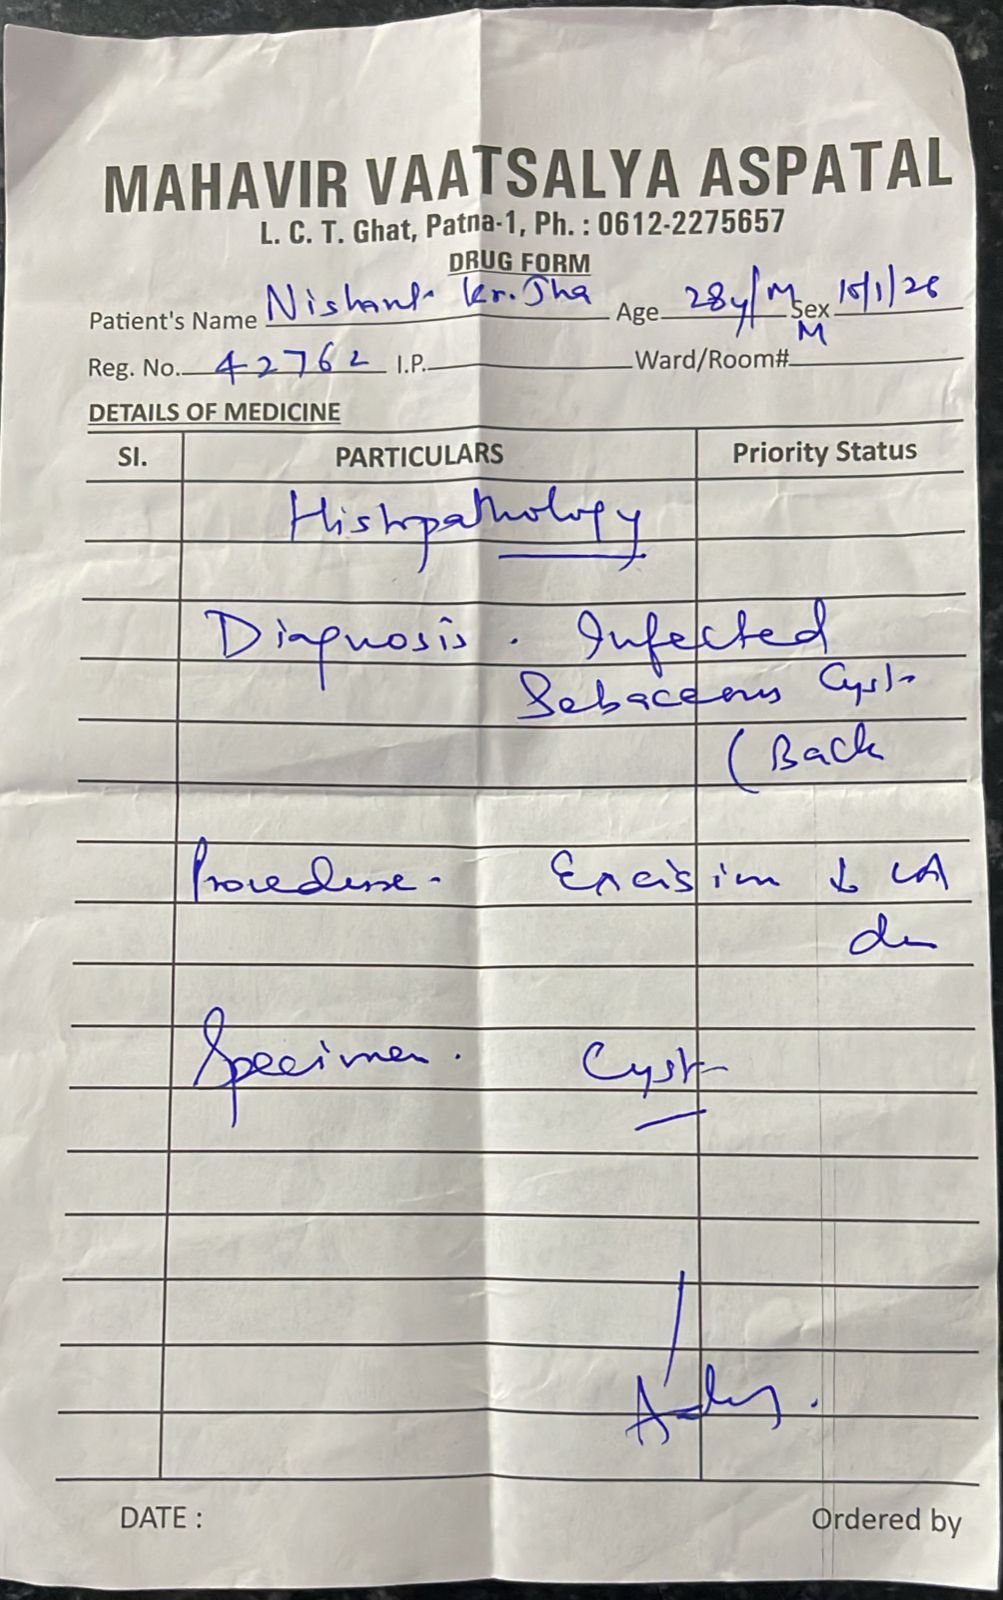 MAHAVIR VAATSALYA ASPATAL
L. C. T. Ghat, Patna-1, Ph. : 0612-2275657
DRUG FORM
Patient's Name Nishant Kr. Jha Age 28y/M Sex M 15/1/26
Reg. No. 42762 I.P. Ward/Room#
DETAILS OF MEDICINE
Sl. PARTICULARS Priority Status
Histopathology
Diagnosis. Infected
Sebaceous Cyst
(Back
Procedure - Excision ↓ LA
Specimen. Cyst
DATE : Ordered by